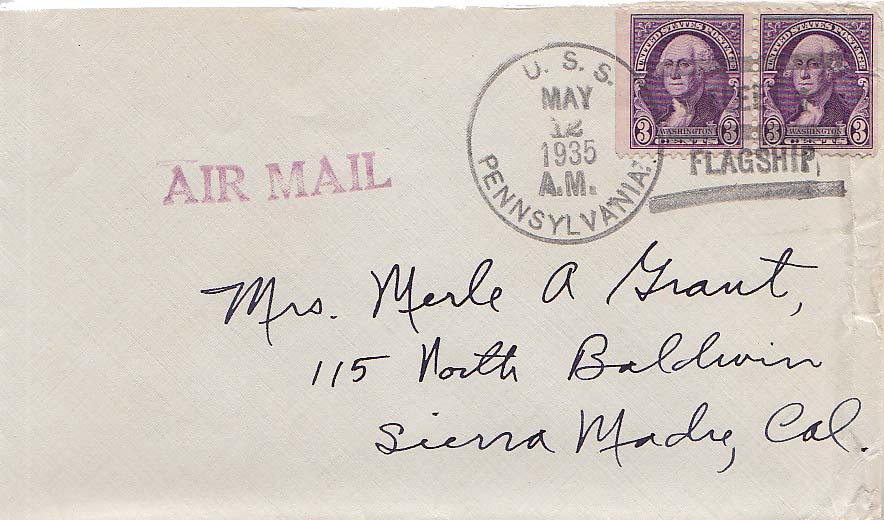 UNITED STATES POSTAGE
3 WASHINGTON 3
CENTS
UNITED STATES POSTAGE
3 WASHINGTON 3
CENTS
U. S. S.
MAY
12
1935
A.M.
PENNSYLVANIA
FLAGSHIP
AIR MAIL
Mrs. Merle A Grant,
115 North Baldwin
Sierra Madre, Cal.